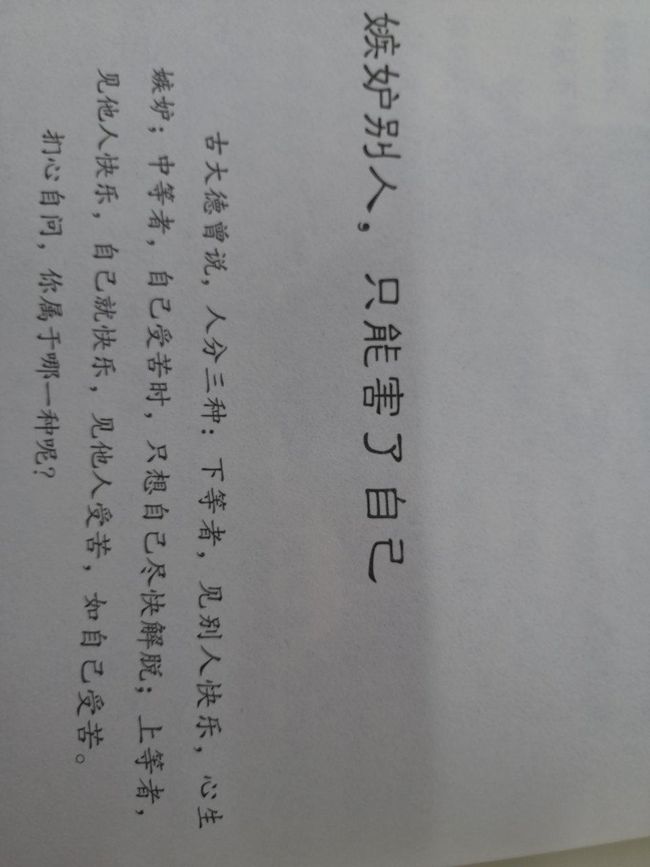 嫉妒别人，只能害了自己
古大德曾说，人分三种：下等者，见别人快乐，心生
嫉妒；中等者，自己受苦时，只想自己尽快解脱；上等者，
见他人快乐，自己就快乐，见他人受苦，如自己受苦。
扪心自问，你属于哪一种呢？